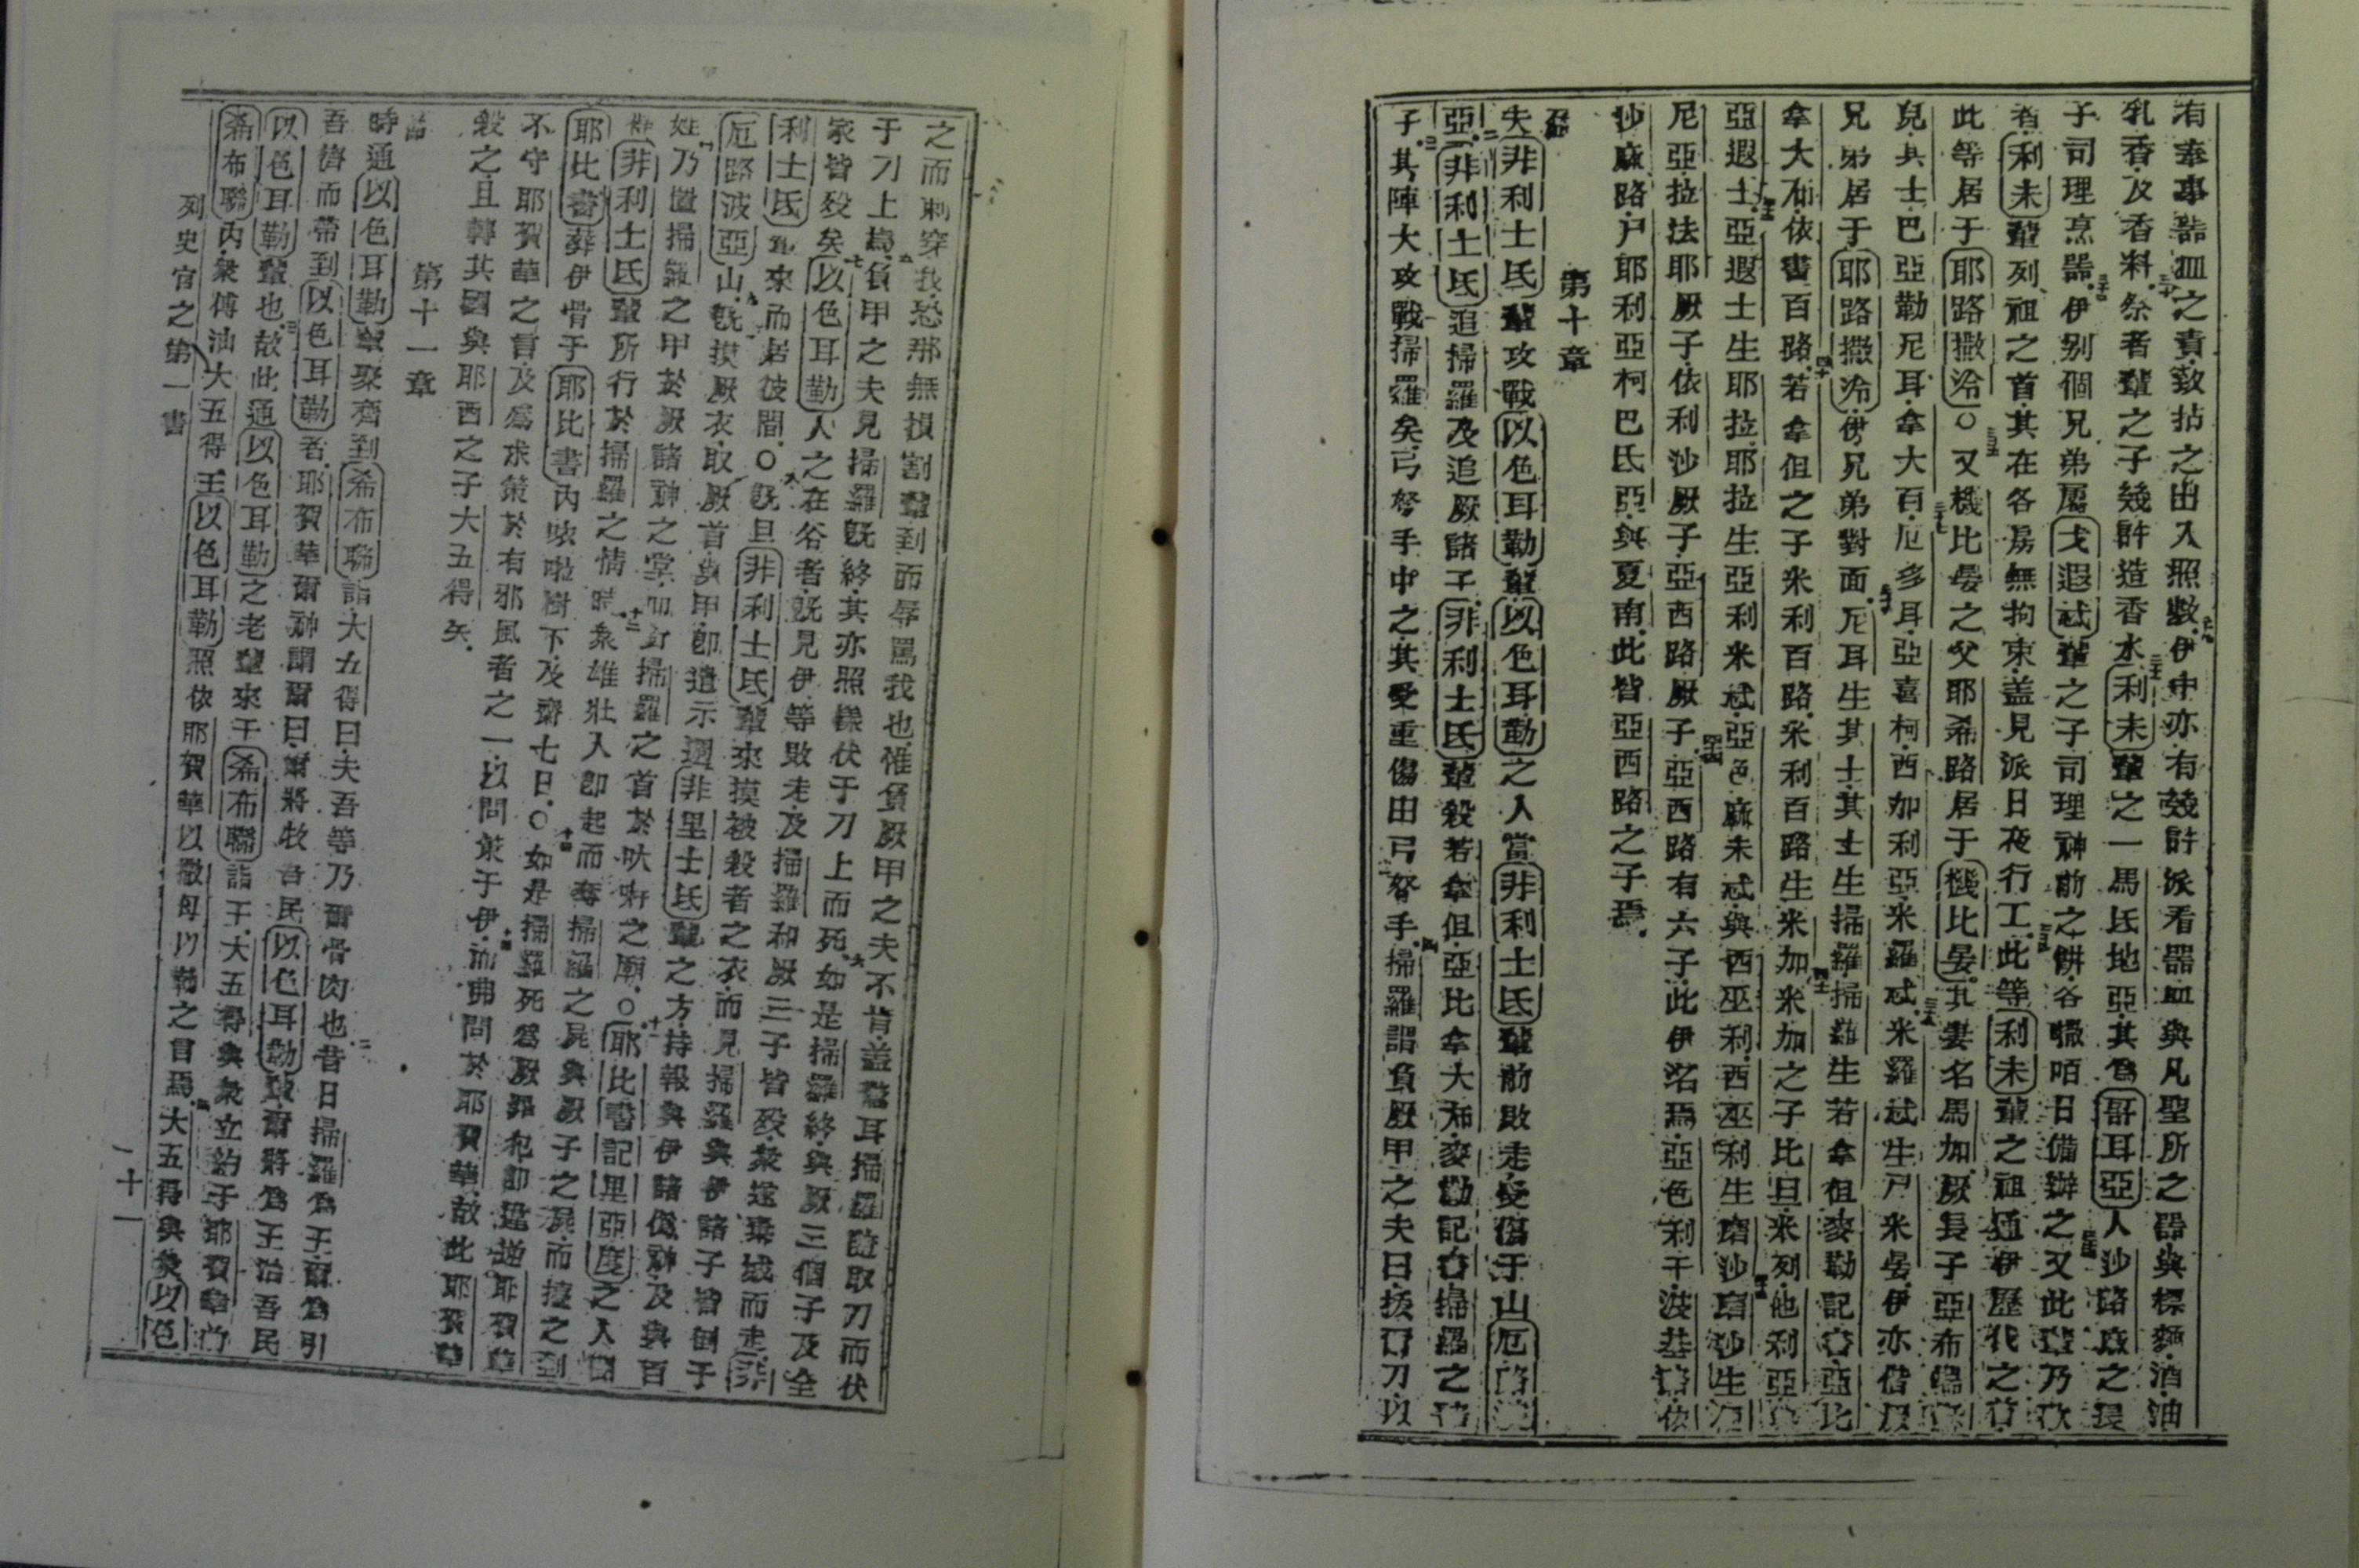 有奉事器皿之責致拈之出入照數伊中亦有幾許派看器皿與凡聖所之器與標麵酒油
乳香及香料祭者輩之子幾許造香水利未輩之一馬氏地亞其為哥耳亞人沙路麻之長
子司理烹器伊別個兄弟屬戈遐忒輩之子司理神前之餅各囎咟日備辦之又此輩乃
者利未輩列祖之首其在各房無拘束盖見派日夜行工此等利未輩之祖通伊歷代之首
此等居于耶路撒冷○又機比晏之父耶希路居于機比晏其妻名馬加厥長子亞布
兒其士巴亞勒尼耳拿大百厄多耳亞喜柯西加利亞米羅忒米羅忒生尸米晏伊亦偕厥
兄弟居于耶路撒冷伊兄弟對面尼耳生其士其士生掃羅掃羅生若拿但麥勒記亞比
拿大依書百路若拿但之子米利百路米利百路生米加米加之子比旦米列他利亞
亞遐士亞遐士生耶拉耶拉生亞利米忒亞色麻未忒與西巫利西巫利生磨沙磨沙生
尼亞拉法耶厥子依利沙厥子亞西路厥子亞西路有六子此伊名焉亞色利干波基路依
沙麻路尸耶利亞柯巴氏亞與夏南此皆亞西路之子焉
第十章
夫非利士氏輩攻戰以色耳勒輩以色耳勒之人當非利士氏輩前敗走受傷于山厄路波
亞非利士氏追掃羅及追厥諸子非利士氏輩殺若拿但亞比拿大和麥勒記掃羅之
子其陣大攻戰掃羅矣弓弩手中之其受重傷由弓弩手掃羅謂負厥甲之夫曰拔刀以
之而刺穿我恐那無損割輩到而辱罵我也惟負厥甲之夫不肯盖驚耳掃羅遂取刀而伏
于刀上焉負甲之夫見掃羅既終其亦照樣伏于刀上而死如是掃羅終與厥三個子及全
家皆歿矣以色耳勒人之在谷者既見伊等敗走及掃羅和厥三子皆歿衆遂棄城而走非
利士氏輩來而居彼間○既旦非利士氏輩來摸被殺者之衣而見掃羅與伊諸子皆倒于
厄路波亞山既摸厥衣取厥首與甲即遣示週非里士氏輩之方持報與伊諸偶神及與百
姓乃置掃羅之甲於厥諸神之堂而釘掃羅之首於吠𡃶之廟○耶比書記里亞度之人聞
非利士氏輩所行於掃羅之情時衆雄壯人即起而奪掃羅之屍與厥子之屍而擡之到
耶比書葬伊骨于耶比書內咴啦樹下及齋七日○如是掃羅死為厥罪犯即違逆耶賀華
不守耶賀華之言及為求策於有邪風者之一以問策于伊而弗問於耶賀華故此耶賀華
殺之且轉其國與耶西之子大五得矣
第十一章
時通以色耳勒輩聚齊到希布聯詣大五得曰夫吾等乃爾骨肉也昔日掃羅為王爾為引
吾儕而帶到以色耳勒者耶賀華爾神謂爾曰爾將牧吾民以色耳勒輩爾將為王治吾民
以色耳勒輩也故此通以色耳勒之老輩來于希布聯詣王大五得與衆立約于耶賀華前
希布聯內衆傅油大五得王以色耳勒照依耶賀華以撒母以勒之言焉大五得與衆以色
列史官之第一書
十一